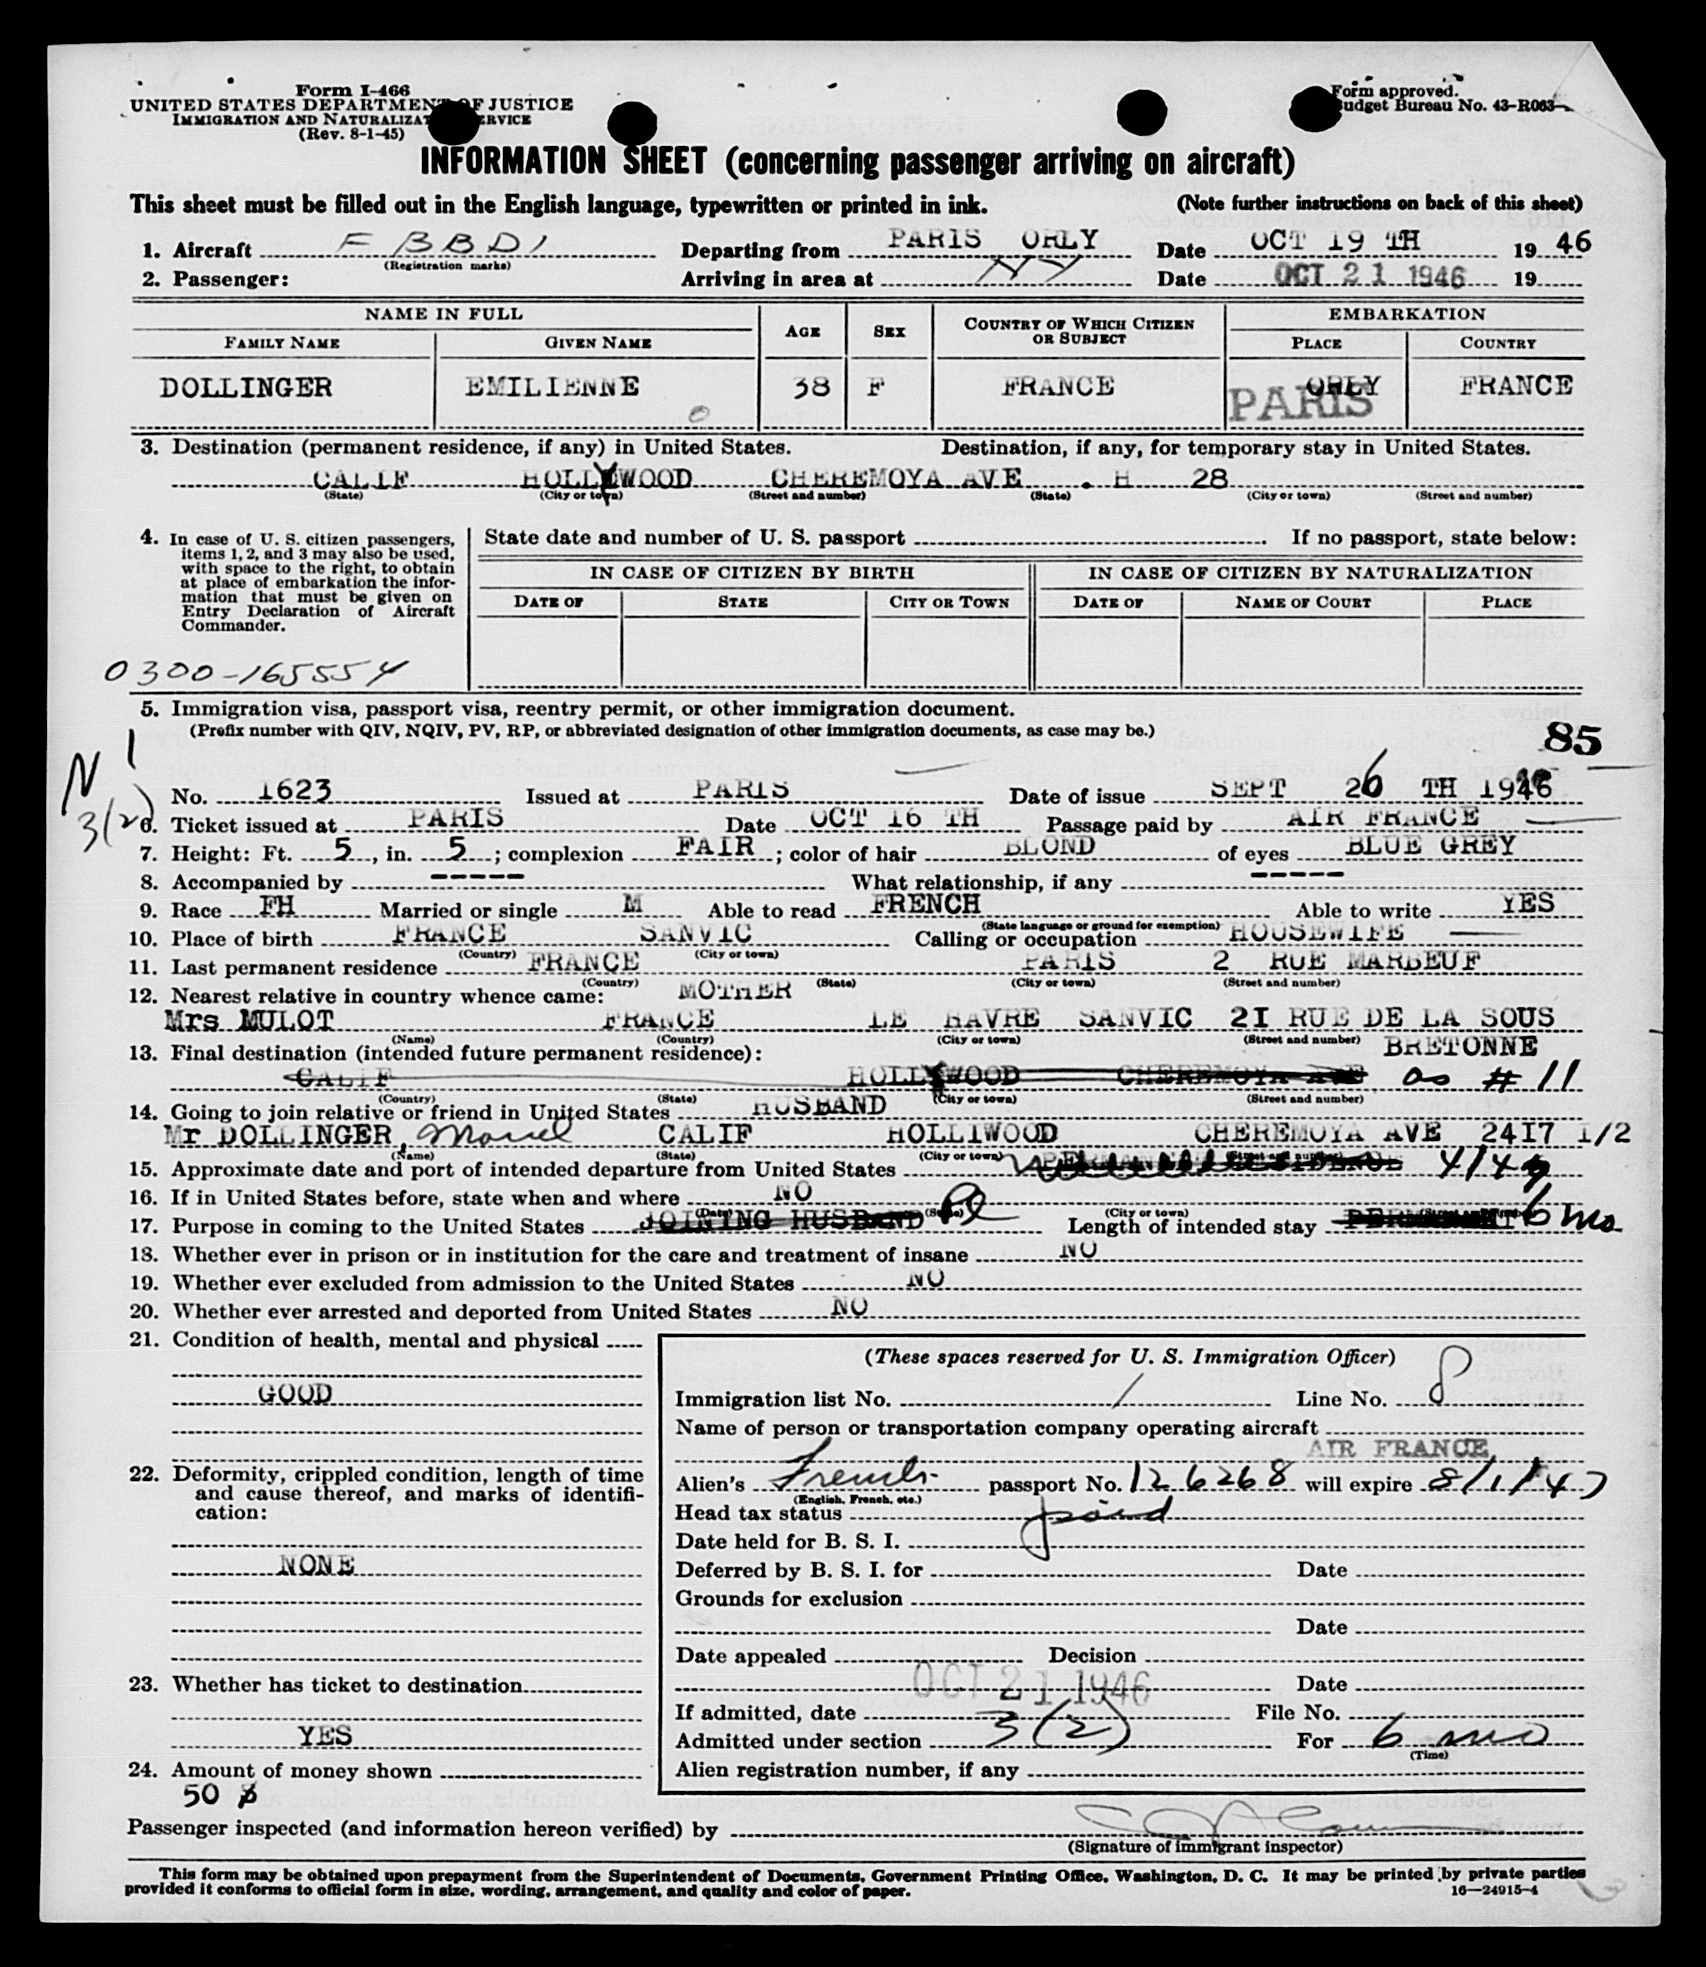 Form I-466
UNITED STATES DEPARTMENT OF JUSTICE
IMMIGRATION AND NATURALIZATION SERVICE
(Rev. 8-1-45)
Form approved.
Budget Bureau No. 43-R063-
INFORMATION SHEET (concerning passenger arriving on aircraft)
This sheet must be filled out in the English language, typewritten or printed in ink. (Note further instructions on back of this sheet)
1. Aircraft F BBDI Departing from PARIS ORLY Date OCT 19 TH 19 46
(Registration marks)
2. Passenger: Arriving in area at NY Date OCT 21 1946 19
NAME IN FULL AGE SEX COUNTRY OF WHICH CITIZEN OR SUBJECT EMBARKATION
FAMILY NAME GIVEN NAME PLACE COUNTRY
DOLLINGER EMILIENNE 38 F FRANCE ORLY FRANCE
PARIS
3. Destination (permanent residence, if any) in United States. Destination, if any, for temporary stay in United States.
CALIF HOLLYWOOD CHEREMOYA AVE . H 28
(State) (City or town) (Street and number) (State) (City or town) (Street and number)
4. In case of U. S. citizen passengers, items 1, 2, and 3 may also be used, with space to the right, to obtain at place of embarkation the information that must be given on Entry Declaration of Aircraft Commander.
State date and number of U. S. passport . If no passport, state below:
IN CASE OF CITIZEN BY BIRTH IN CASE OF CITIZEN BY NATURALIZATION
DATE OF STATE CITY OR TOWN DATE OF NAME OF COURT PLACE
0300-165554
5. Immigration visa, passport visa, reentry permit, or other immigration document.
(Prefix number with QIV, NQIV, PV, RP, or abbreviated designation of other immigration documents, as case may be.)
85
N 1
3(2)
No. 1623 Issued at PARIS Date of issue SEPT 26 TH 1946
6. Ticket issued at PARIS Date OCT 16 TH Passage paid by AIR FRANCE
7. Height: Ft. 5, in. 5; complexion FAIR; color of hair BLOND of eyes BLUE GREY
8. Accompanied by ----- What relationship, if any -----
9. Race FH Married or single M Able to read FRENCH Able to write YES
(State language or ground for exemption)
10. Place of birth FRANCE SANVIC Calling or occupation HOUSEWIFE
(Country) (City or town)
11. Last permanent residence FRANCE PARIS 2 RUE MARBEUF
(Country) (State) (City or town) (Street and number)
12. Nearest relative in country whence came: MOTHER
Mrs MULOT FRANCE LE HAVRE SANVIC 2I RUE DE LA SOUS
(Name) (Country) (City or town) (Street and number) BRETONNE
13. Final destination (intended future permanent residence):
CALIF HOLLYWOOD CHEREMOYA AVE as # 11
(Country) (State) (City or town) (Street and number)
14. Going to join relative or friend in United States HUSBAND
Mr DOLLINGER, CALIF HOLLIWOOD CHEREMOYA AVE 24I7 1/2
(Name) (State) (City or town) (Street and number)
15. Approximate date and port of intended departure from United States PERMANENT RESIDENCE 4/47
16. If in United States before, state when and where NO
(Date) (State) (City or town) (Street and number)
17. Purpose in coming to the United States JOINING HUSBAND Pl Length of intended stay PERMANENT 6 mo.
18. Whether ever in prison or in institution for the care and treatment of insane NO
19. Whether ever excluded from admission to the United States NO
20. Whether ever arrested and deported from United States NO
21. Condition of health, mental and physical
GOOD
22. Deformity, crippled condition, length of time and cause thereof, and marks of identification:
NONE
23. Whether has ticket to destination
YES
24. Amount of money shown
50 $
(These spaces reserved for U. S. Immigration Officer)
Immigration list No. 1 Line No. 8
Name of person or transportation company operating aircraft
AIR FRANCE
Alien's French passport No. 126268 will expire 8/1/47
(English, French, etc.)
Head tax status paid
Date held for B. S. I.
Deferred by B. S. I. for Date
Grounds for exclusion
Date
Date appealed Decision
OCT 21 1946 Date
If admitted, date File No.
Admitted under section 3(2) For 6 mo
(Time)
Alien registration number, if any
Passenger inspected (and information hereon verified) by
(Signature of immigrant inspector)
This form may be obtained upon prepayment from the Superintendent of Documents, Government Printing Office, Washington, D. C. It may be printed by private parties
provided it conforms to official form in size, wording, arrangement, and quality and color of paper. 16—24915-4